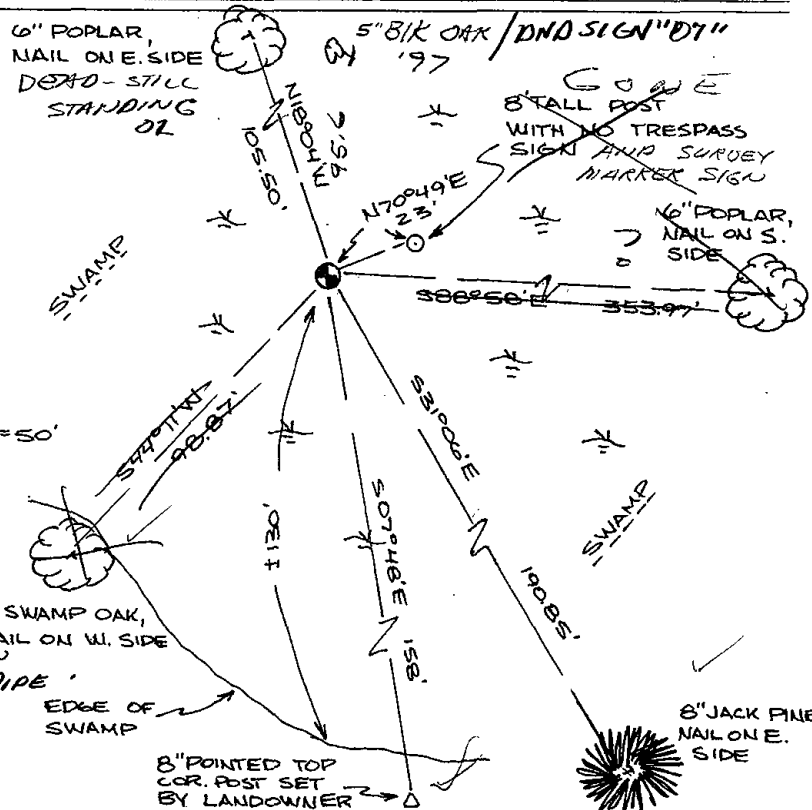 6" POPLAR,
NAIL ON E. SIDE
DEAD - STILL
STANDING
02
5" BLK OAK / DND SIGN "07"
'97
GONE
8' TALL POST
WITH NO TRESPASS
SIGN AND SURVEY
MARKER SIGN
N18°04'W
105.50'
N70°49'E
23'
6" POPLAR,
NAIL ON S.
SIDE
?
SWAMP
S88°58'E 353.97'
S44°11'W
98.87'
=50'
±130'
S07°48'E 158'
S31°06'E
190.85'
SWAMP
SWAMP OAK,
NAIL ON W. SIDE
PIPE
EDGE OF
SWAMP
8" POINTED TOP
COR. POST SET
BY LANDOWNER
8" JACK PINE
NAIL ON E.
SIDE